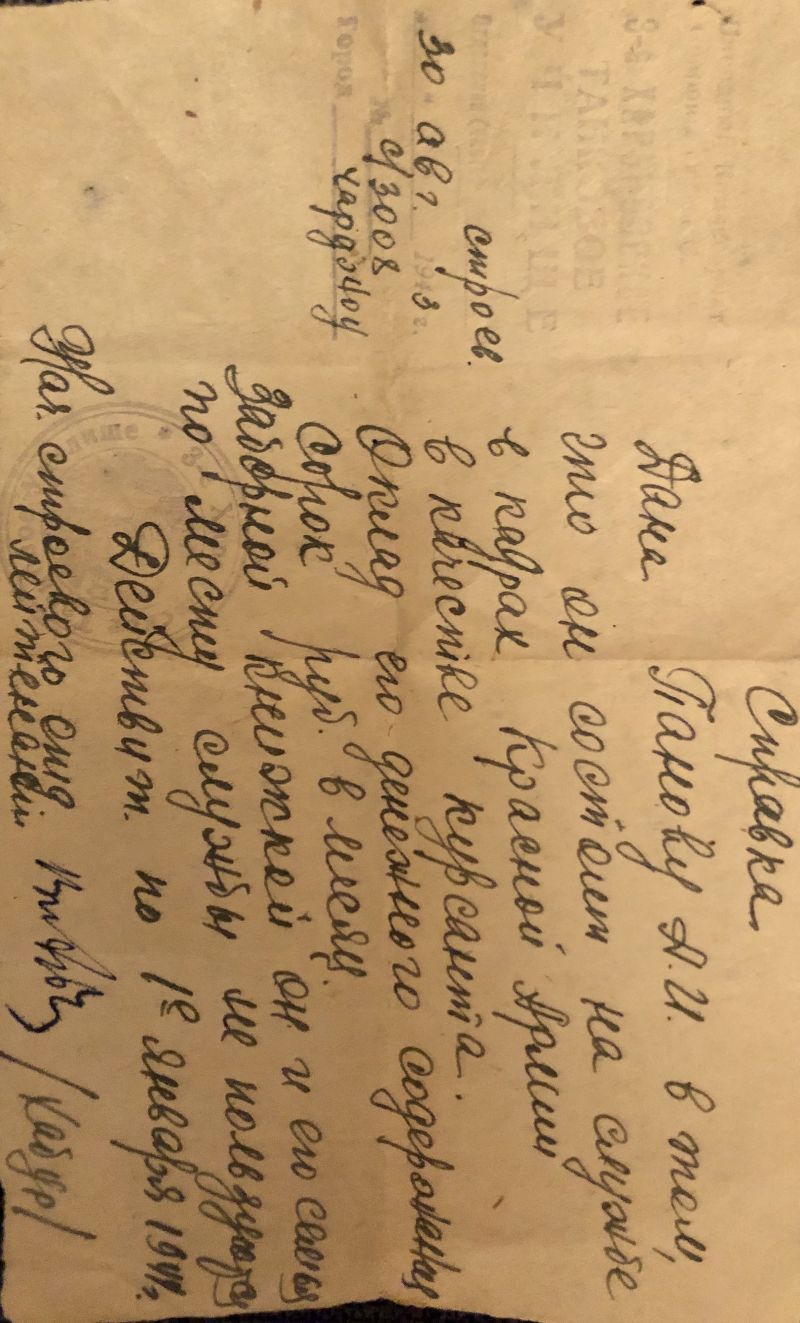 2-е ХАРЬКОВСКОЕ
ТАНКОВОЕ
УЧИЛИЩЕ
строев.
30 авг. 1943 г.
№ с/3008
Город Чарджоу
Справка
Дана Панову А.И. в том,
что он состоит на службе
в кадрах Красной Армии
в качестве курсанта.
Оклад его денежного содержания
сорок руб. в месяц.
Заборной книжкой он и его семья
по месту службы не пользуются
Действит. по 1е января 1944г.
Нач. строевого отд
лейтенант